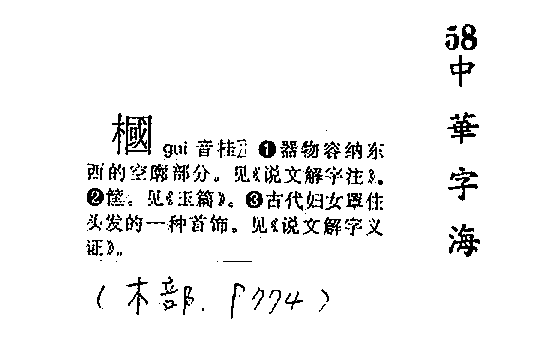 58
中華字海
槶 gui 音桂 ❶器物容纳东
西的空廓部分。见《说文解字注》。
❷筐。见《玉篇》。❸古代妇女罩住
头发的一种首饰。见《说文解字义
证》。
(木部. P774)